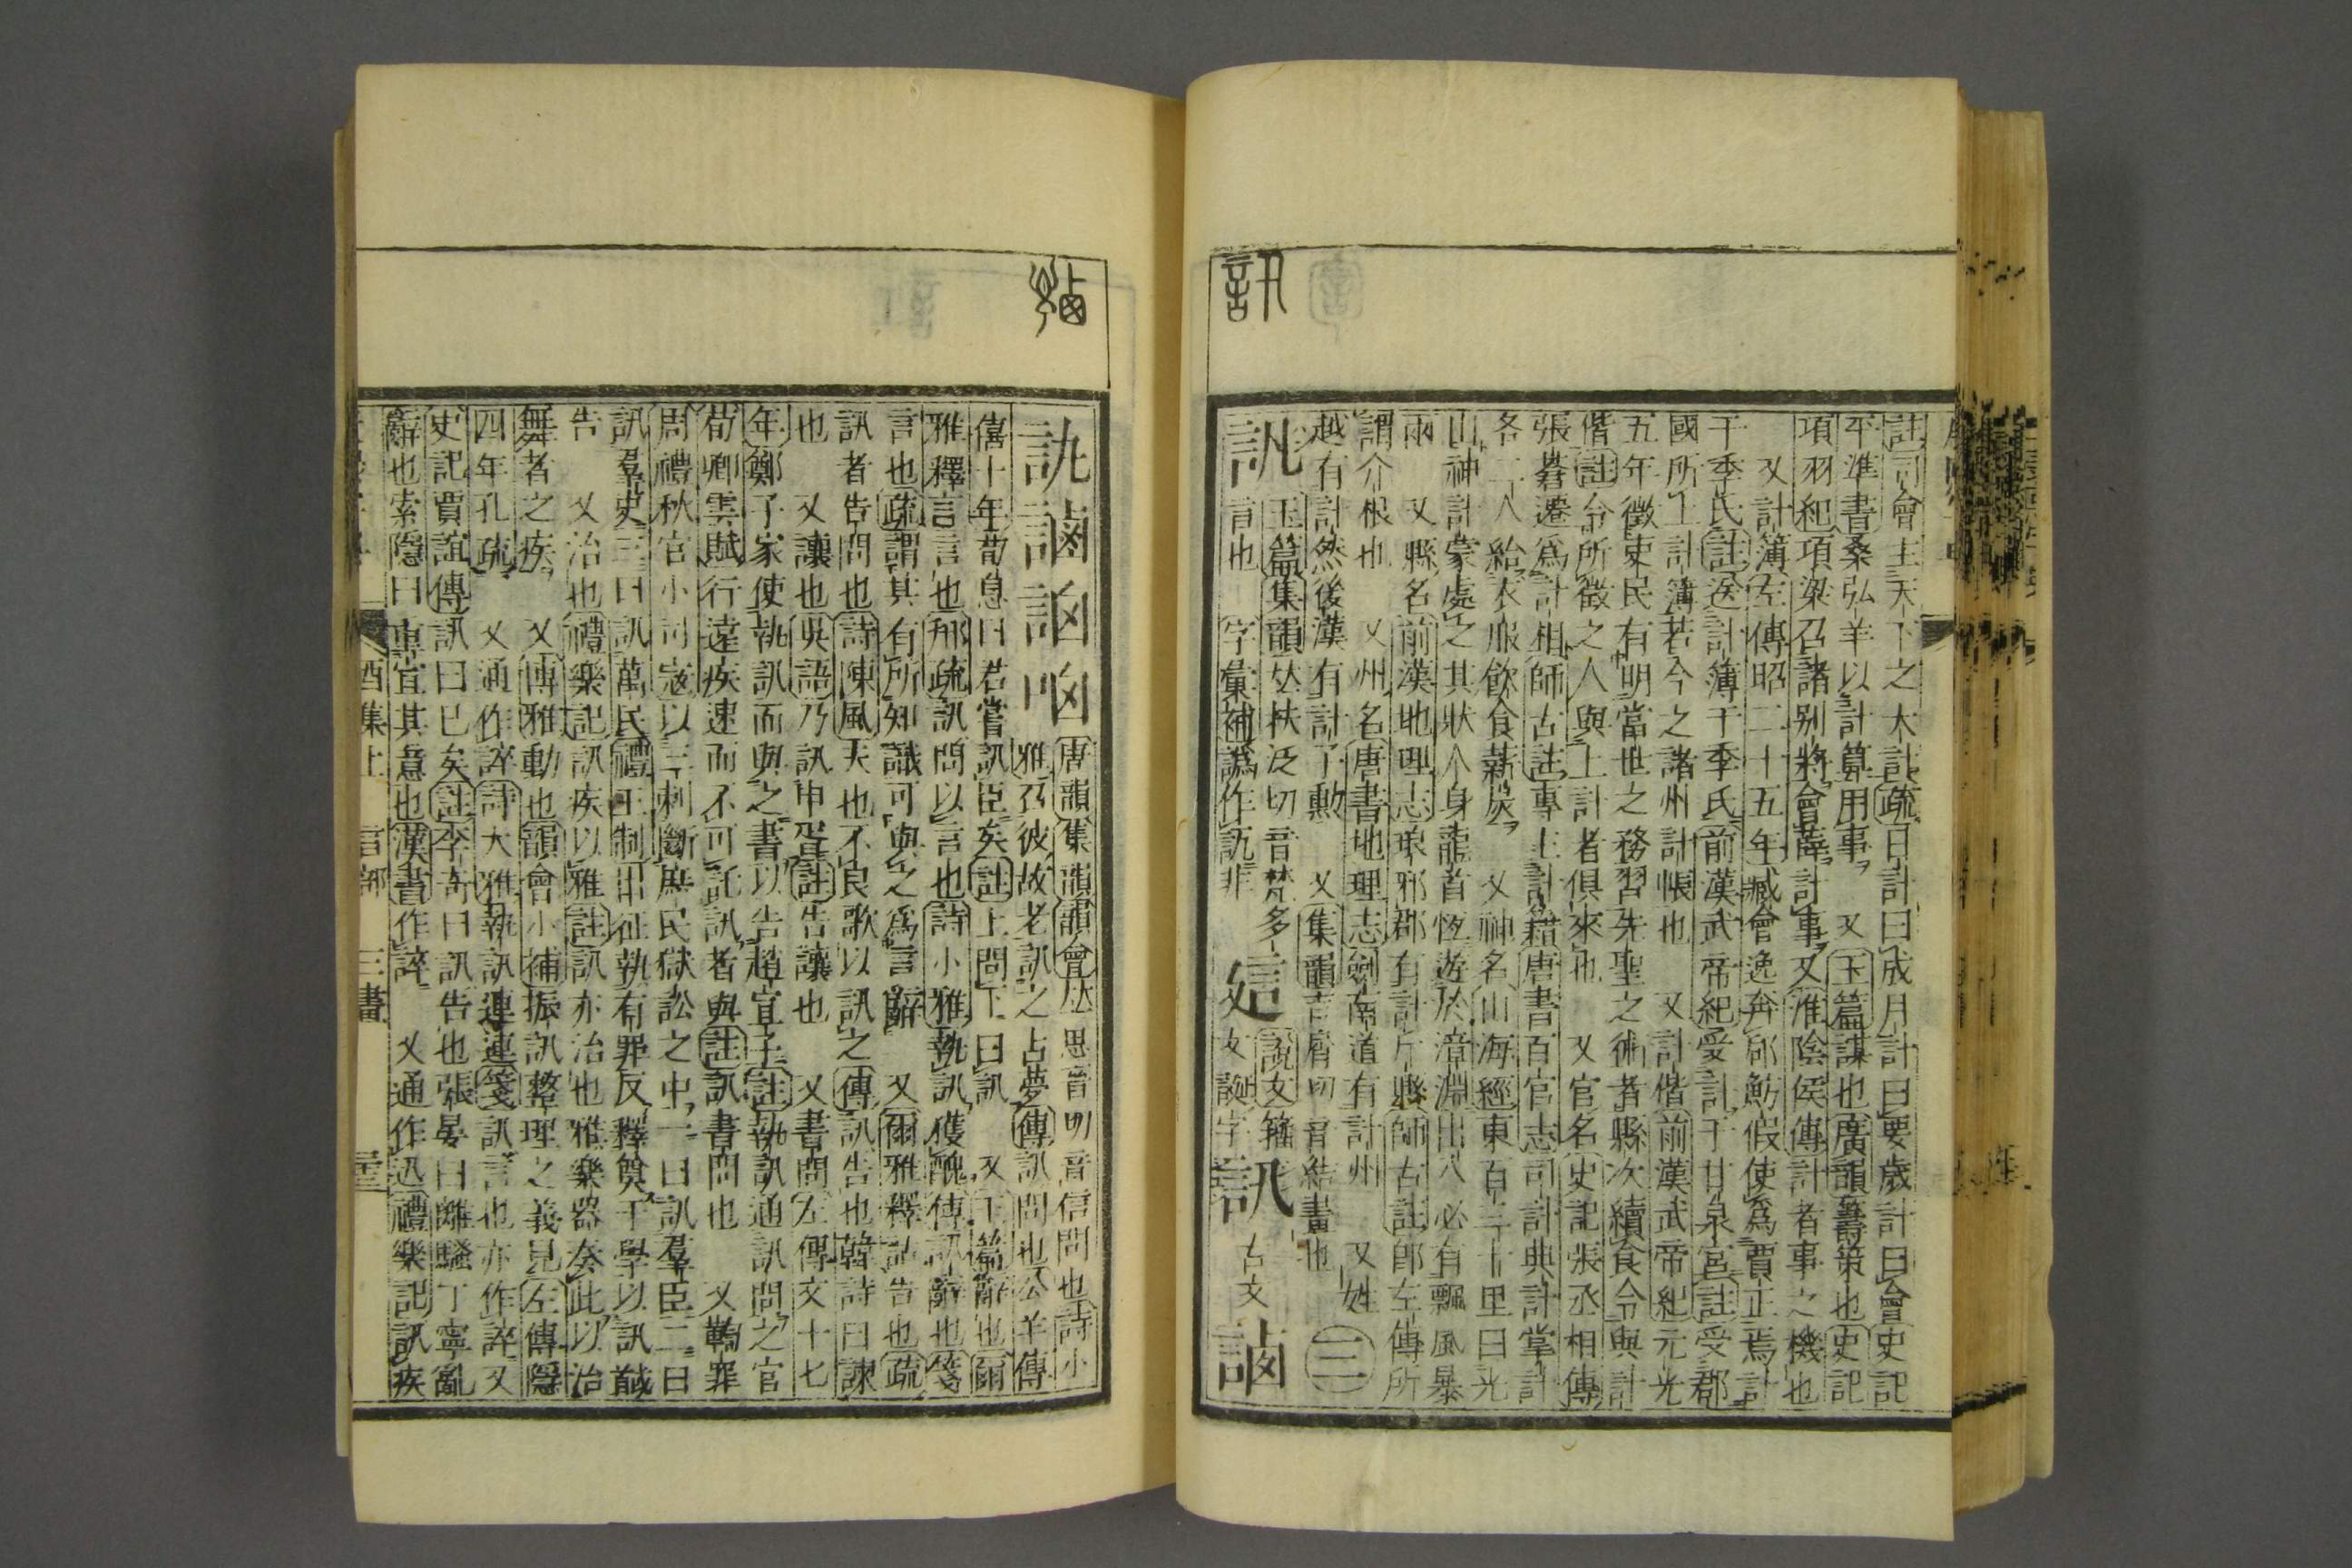 訊
註司會主天下之大計疏日計曰成月計曰要歲計曰會史記
平準書桑弘羊以計算用事又玉篇謀也廣韻籌策也史記
項羽紀項梁召諸別將會薛計事又淮陰侯傳計者事之機也
又計簿左傳昭二十五年臧會逸奔郈魴假使為賈正焉計
于季氏註送計簿于季氏前漢武帝紀受計于甘泉宮註受郡
國所上計簿若今之諸州計帳也又計偕前漢武帝紀元光
五年徵吏民有明當世之務習先聖之術者縣次續食令與計
偕註令所徵之人與上計者俱來也又官名史記張丞相傳
張蒼遷為計相師古註專主計籍唐書百官志司計典計掌計
各二人給衣服飲食薪炭又神名山海經東百三十里曰光
山神計蒙處之其狀人身龍首恆遊於漳淵出入必有飄風暴
雨又縣名前漢地理志琅邪郡有計斤縣師古註即左傳所
謂介根也又州名唐書地理志劍南道有計州又姓
越有計然後漢有計子勲又集韻吉屑切音結畫也三
訊玉篇集韻𠀤扶泛切音梵多言也字彙補譌作訉非𧥣說文籒文誕字訊古文𧩼
訙𧩼𧧊㕼唐韻集韻韻會𠀤思晉切音信問也詩小
雅召彼故老訊之占夢傳訊問也公羊傳
僖十年荀息曰君嘗訊臣矣註上問下曰訊又玉篇辭也爾
雅釋言言也郉疏訊問以言也詩小雅執訊獲醜傳訊辭也箋
言也疏謂其有所知識可與之為言辭又爾雅釋詁告也疏
訊者告問也詩陳風夫也不良歌以訊之傳訊告也韓詩曰諫
也又讓也吳語乃訊申胥註告讓也又書問左傳文十七
年鄭子家使執訊而與之書以告趙宣子註執訊通訊問之官
荀卿雲賦行遠疾速而不可託訊者與註訊書問也又鞫罪
周禮秋官小司寇以三刺斷庶民獄訟之中一曰訊羣臣二曰
訊羣吏三曰訊萬民禮王制出征執有罪反釋奠于學以訊馘
告又治也禮樂記訊疾以雅註訊亦治也雅樂器奏此以治
舞者之疾又博雅動也韻會小補振訊整理之義見左傳隱
四年孔疏又通作誶詩大雅執訊連連箋訊言也亦作誶又
史記賈誼傳訊曰已矣註李奇曰訊告也張晏曰離騷下章亂
辭也索隱曰重宣其意也漢書作誶又通作迅禮樂記訊疾
酉集上 言部 三畫